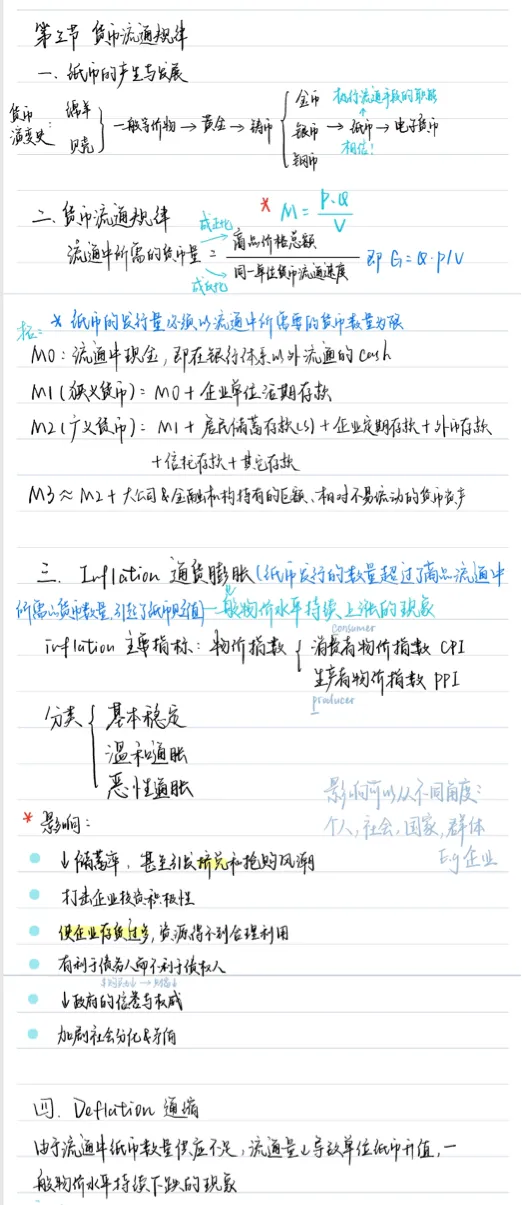 第三节 货币流通规律
一、纸币的产生与发展
货币演变史: 绵羊 贝壳 } 一般等价物 → 黄金 → 铸币 { 金币 银币 铜币 → 纸币 → 电子货币
执行流通手段的职能
相信!
二、货币流通规律
* M = P·Q / V
流通中所需的货币量 = 商品价格总额 / 同一单位货币流通速度 即 G=Q·P/V
成正比
成反比
* 纸币的发行量必须以流通中所需要的货币数量为限
M0: 流通中现金, 即在银行体系以外流通的 cash
M1 (狭义货币): M0 + 企业单位活期存款
M2 (广义货币): M1 + 居民储蓄存款(S) + 企业定期存款 + 外币存款
+ 信托存款 + 其它存款
M3 ≈ M2 + 大公司&金融机构持有的巨额、相对不易流动的货币资产
三. Inflation 通货膨胀 (纸币发行的数量超过了商品流通中
所需的货币数量, 引起了纸币贬值) 一般物价水平持续上涨的现象
inflation 主要指标: 物价指数 { 消费者物价指数 CPI
consumer
生产者物价指数 PPI
producer
分类 { 基本稳定
温和通胀
恶性通胀
* 影响:
影响可以从不同角度:
个人, 社会, 国家, 群体
E.g 企业
↓储蓄率, 甚至引发挤兑和抢购风潮
打击企业投资积极性
使企业存货过多, 资源得不到合理利用
有利于债务人而不利于债权人
↓政府的信誉与权威
加剧社会分化&
四. Deflation 通缩
由于流通中纸币数量供应不足, 流通量↓导致单位纸币升值, 一
般物价水平持续下跌的现象